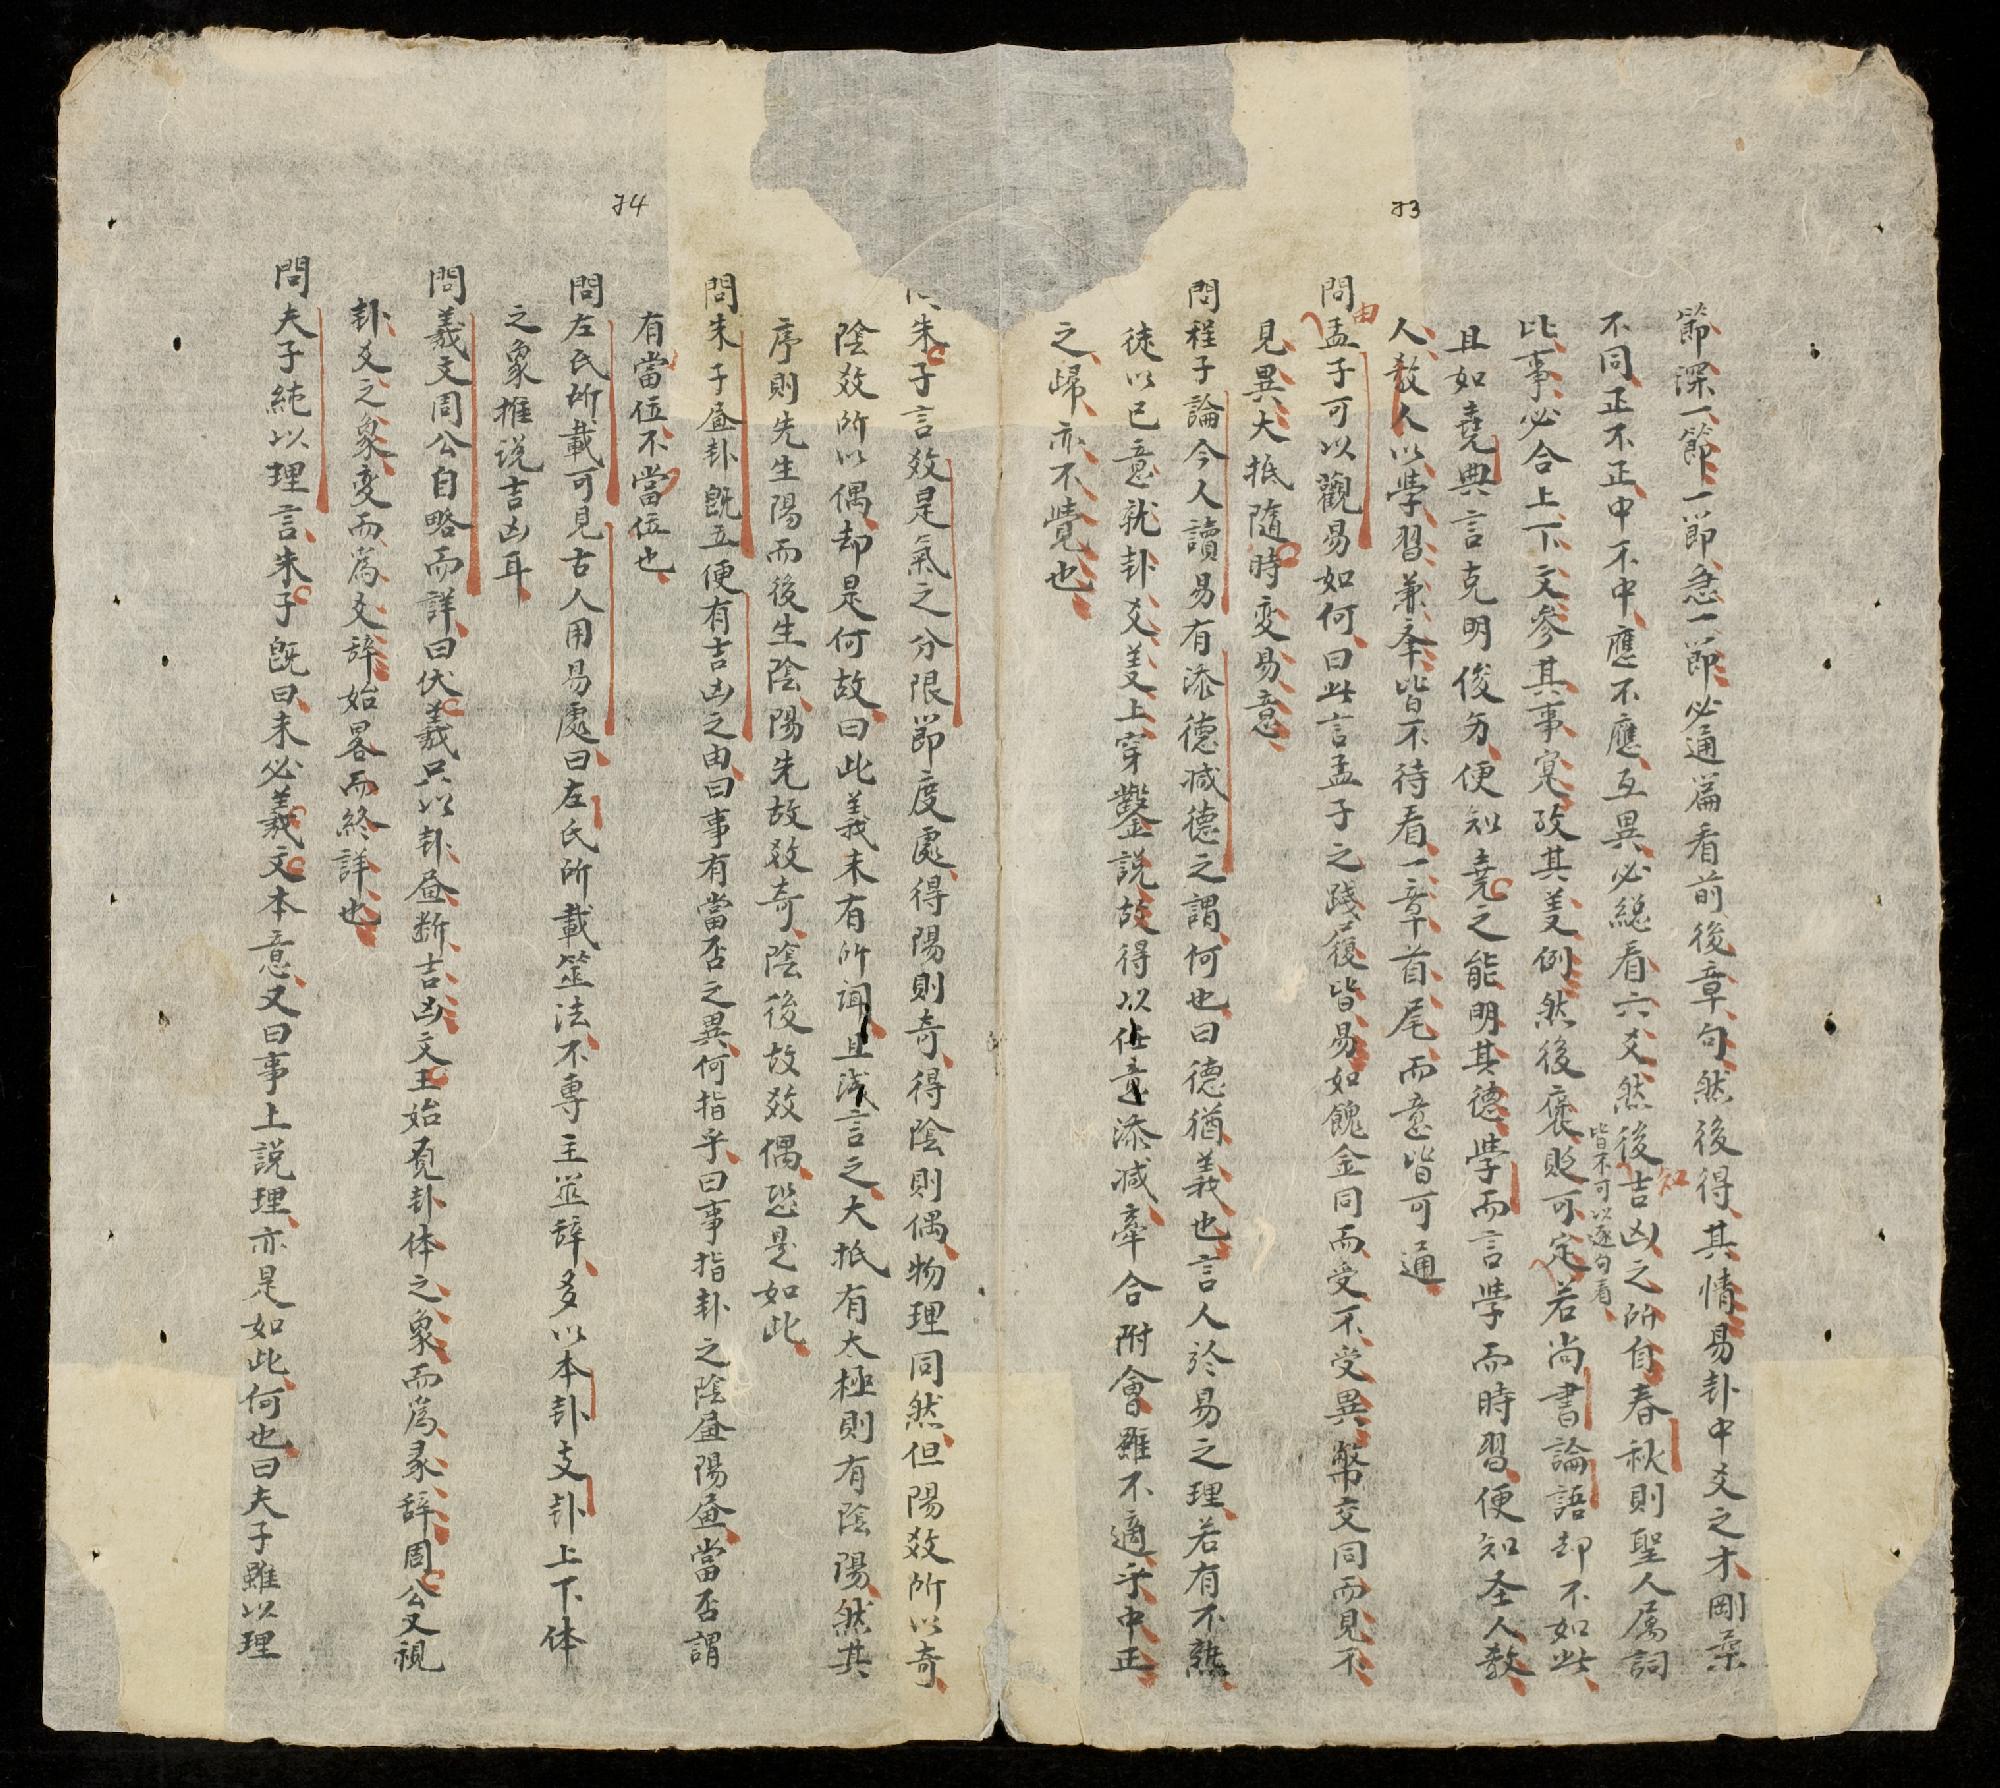 73
節深一節一節急一節必通篇看前後章句然後得其情易卦中爻之才剛柔
不同正不正中不中應不應互異必總看六爻然後知吉凶之所自春秋則聖人属詞
比事必合上下文參其事寔孜其義例然後褒貶可定若尚書論語却不如此
皆不可以逐句看
且如堯典言克明俊夯便知堯之能明其德學而言學而時習便知圣人教
人教人以學習兼夆皆不待看一章首尾而意皆可通
問由孟子可以觀易如何曰此言孟子之踐履皆易如餽金同而受不受異幣交同而見不
見異大抵隨時変易意
問程子論今人讀易有添德减德之謂何也曰德猶義也言人於易之理若有不熟
徒以已意就卦爻義上穿鑿説故得以任意添减牽合附會雖不適乎中正
之歸亦不覺也
74
朱子言效是氣之分限節度處得陽則奇得陰則偶物理同然但陽效所以奇
陰效所以偶却是何故曰此義未有所闻且淺言之大抵有太極則有陰陽然其
序則先生陽而後生陰陽先故效奇陰後故效偶恐是如此
問朱子昼卦既立便有吉凶之由曰事有當否之異何指乎曰事指卦之陰昼陽昼當否謂
有當位不當位也
問左氏所載可見古人用易處曰左氏所載筮法不専主䇓辞多以本卦支卦上下体
之象推说吉凶耳
問羲文周公自略而詳曰伏羲只以卦昼断吉凶文王始看卦体之象而為彖辞周公又視
卦爻之象変而為爻辞始畧而終詳也
問夫子純以理言朱子既曰未必羲文本意又曰事上説理亦是如此何也曰夫子雖以理